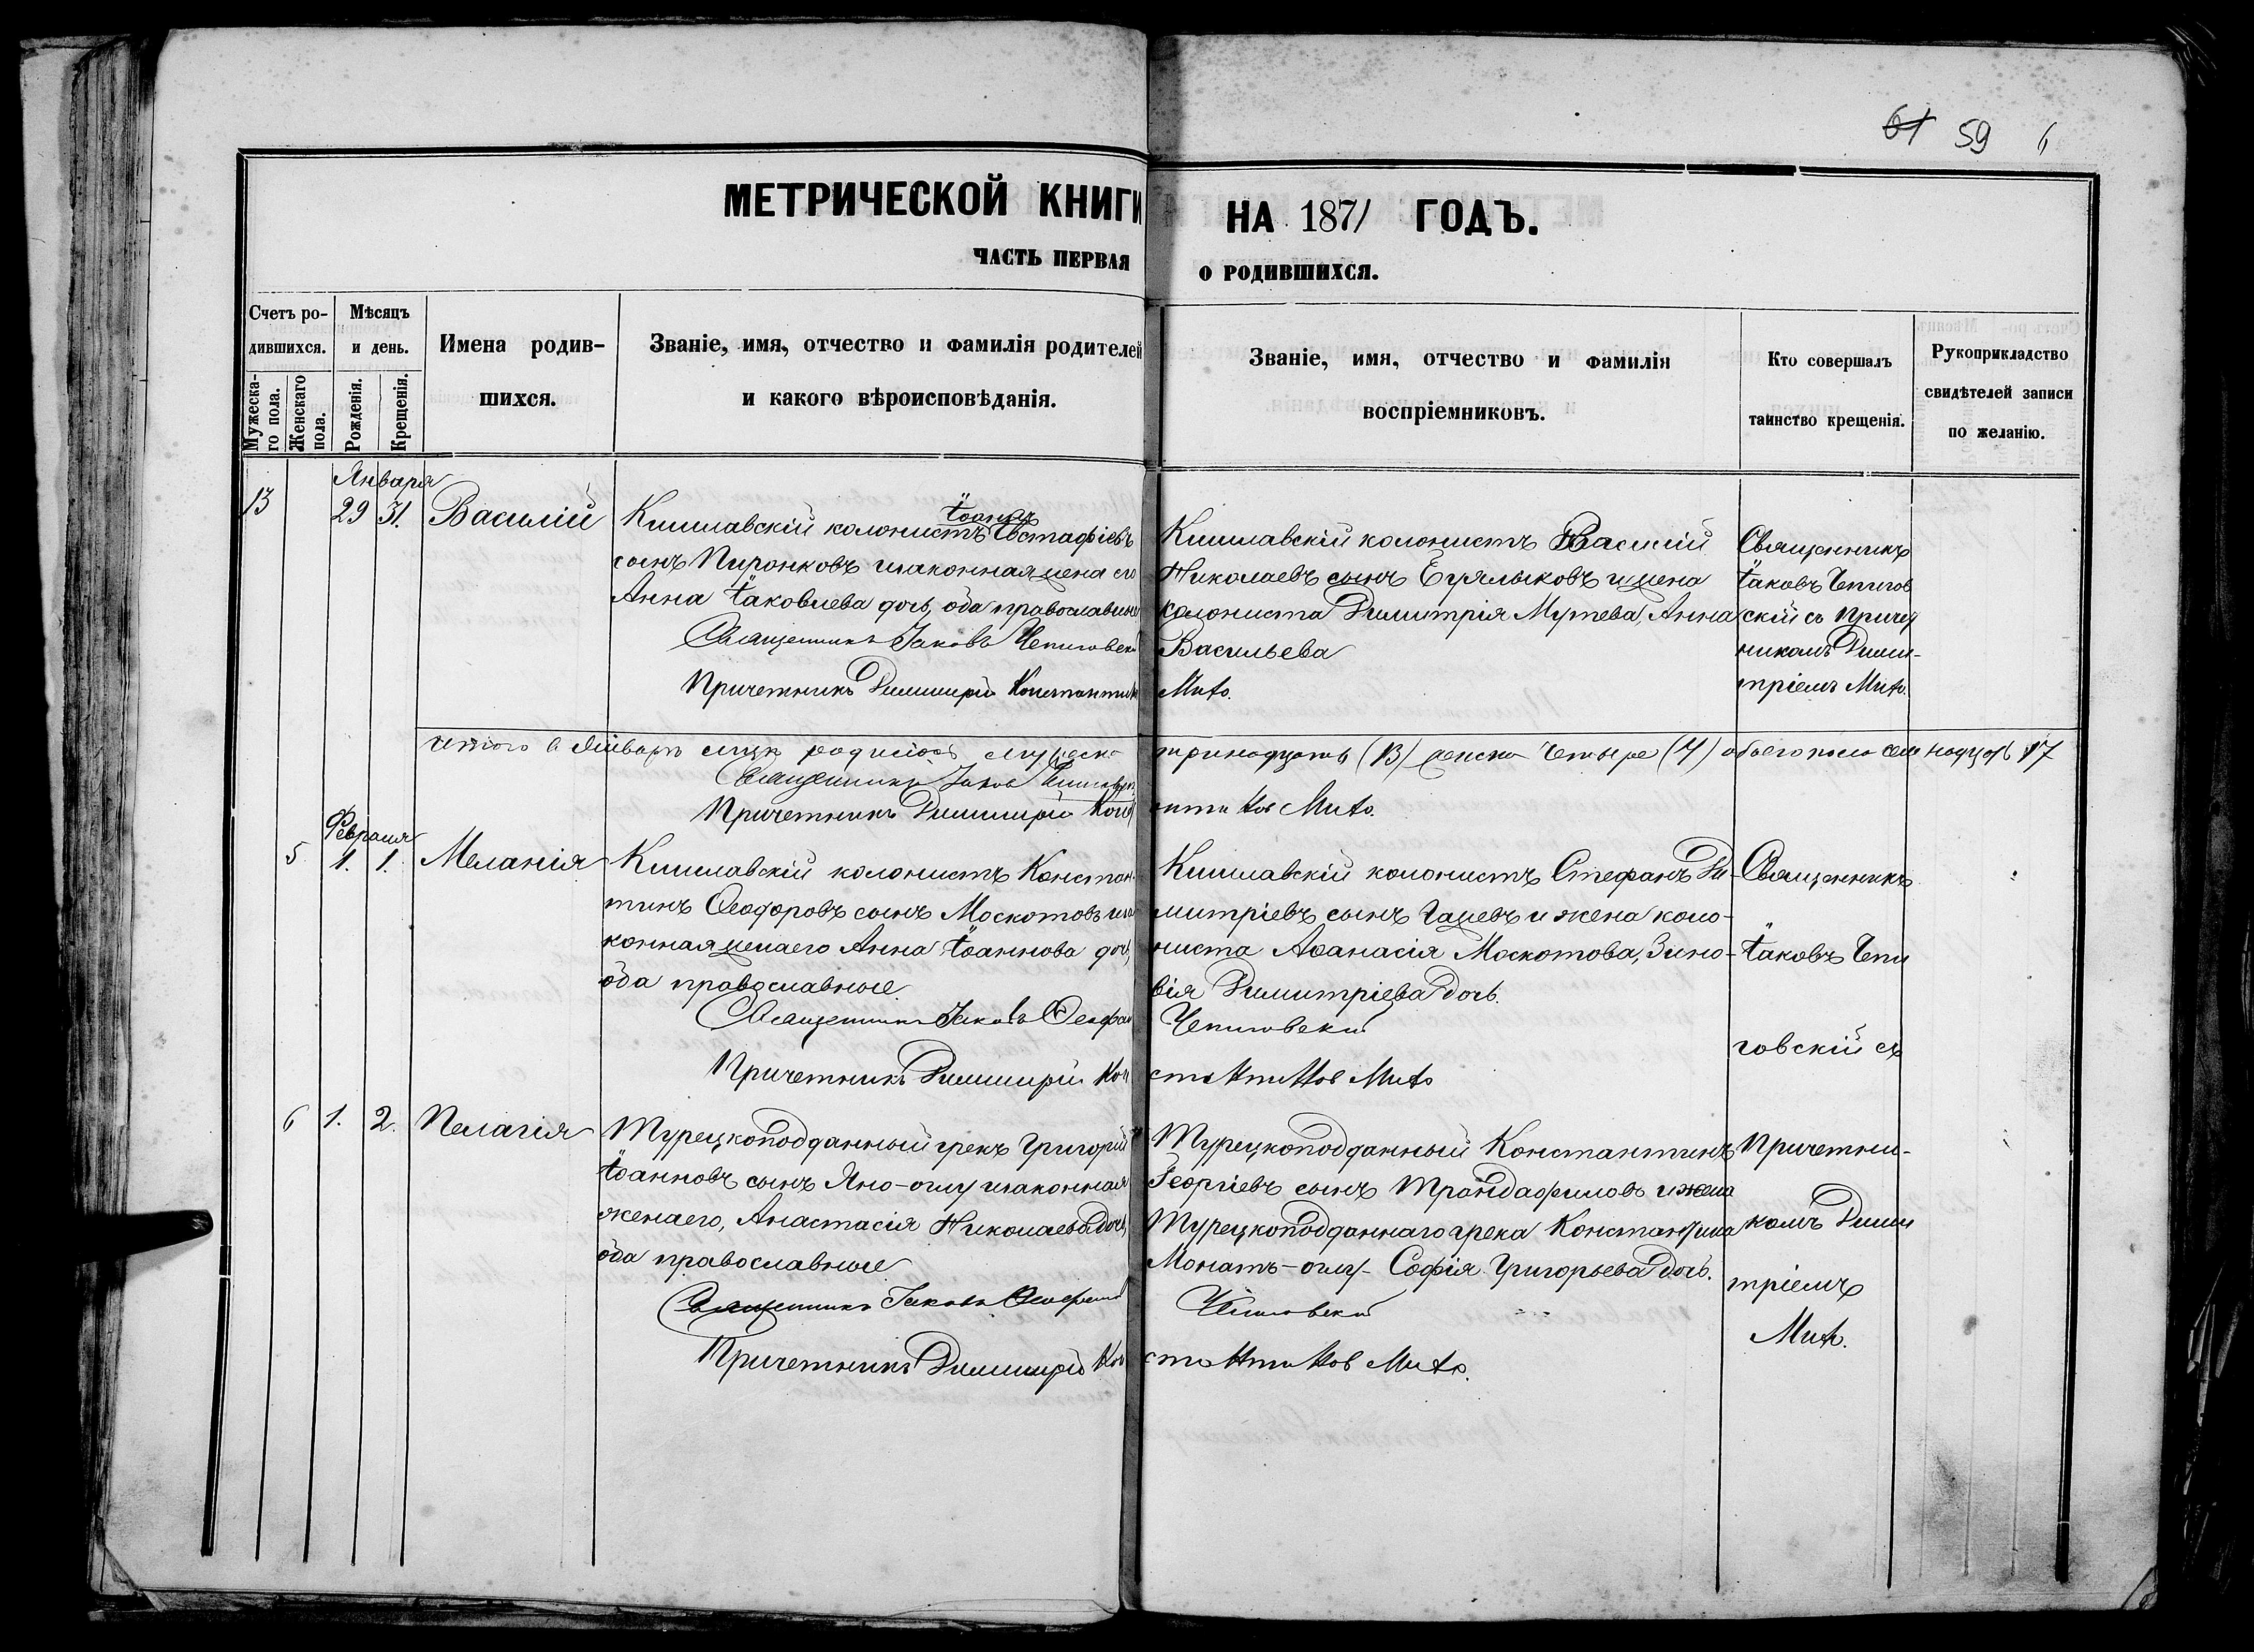 61 59 6
МЕТРИЧЕСКОЙ КНИГИ НА 1871 ГОДЪ.
ЧАСТЬ ПЕРВАЯ О РОДИВШИХСЯ.
Счетъ ро-
дившихся.
Мужеска-
го пола.
Женскаго
пола.
Мѣсяцъ
и день.
Рожденія.
Крещенія.
Имена родив-
шихся.
Званіе, имя, отчество и фамилія родителей
и какого вѣроисповѣданія.
Званіе, имя, отчество и фамилія
воспріемниковъ.
Кто совершалъ
таинство крещенія.
Рукоприкладство
свидѣтелей записи
по желанію.
Января
13 29 31. Василій
Іоаннъ
Кишлавскій колонистъ Евстафіевъ
сынъ Пиронковъ изаконная жена его
Анна Іаковлева дочь, оба православные
Священникъ Іаковъ Чепиговскій
Причетникъ Димитрій Константиновъ
Кишлавскій колонистъ Василій
Николаевъ сынъ Егрялыковъ ижена
колониста Димитрія Мутева, Анна
Васильева
Мито.
Священникъ
Іаковъ Чепигов
скій съ Причет
никомъ Дими-
тріемъ Мито.
итого в Январѣ родилось мужеска тринадцать (13) женска четыре (4) обоего пола семнадцать 17
Священникъ Іаков
Причетникъ Димитрій Константинов Мито.
Февраля
5 1. 1. Меланія
Кишлавскій колонистъ Констан-
тинъ Ѳеодоровъ сынъ Москотовъ иза
конная женаего Анна Іоаннова дочь,
оба православные.
Священникъ Іаковъ Ѳеофан
Причетникъ Димитрій Кон
Кишлавскій колонистъ Стефанъ Ди-
митріевъ сынъ Гацевъ и жена коло-
ниста Аѳанасія Москотова, Зино-
вія Димитріева дочь.
Чепиговскій
стантинов Мито
Священникъ
Іаковъ Чепи
говскій съ
6 1. 2. Пелагія
Турецкоподданный грекъ Григорій
Іоанновъ сынъ Яно-оглу изаконная
женаего, Анастасія Николаева дочь,
оба православные
Священникъ Іаковъ Ѳеофан
Причетникъ Димитрій Кон
Турецкоподданный Константинъ
Георгіевъ сынъ Трандафиловъ ижена
Турецкоподданнаго грека Константина
Монатъ-оглу- Софія Григорьева дочь.
Чепиговскій
стантинов Мито.
Причетни-
комъ Дими
тріемъ
Мито.